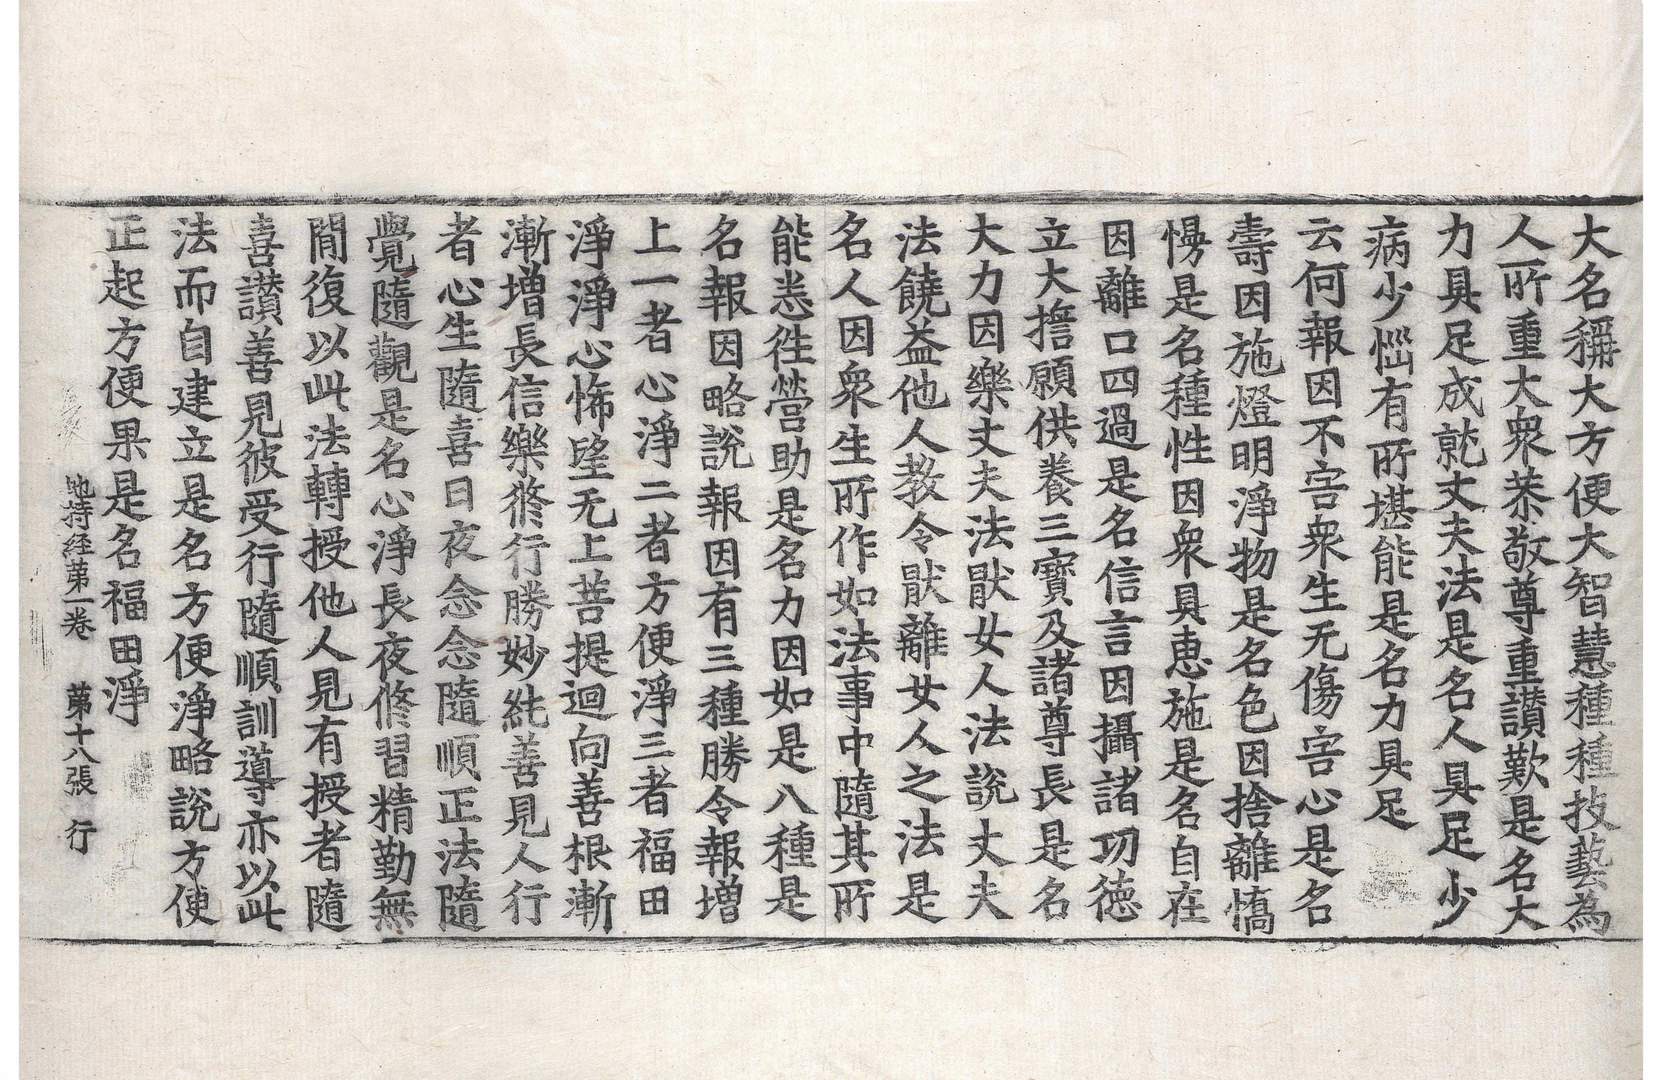 大名稱大方便大智慧種種技藝為
人所重大衆恭敬尊重讃歎是名大
力具足成就丈夫法是名人具足少
病少惱有所堪能是名力具足
云何報因不害衆生无傷害心是名
壽因施燈明淨物是名色因捨離憍
慢是名種性因衆具恵施是名自在
因離口四過是名信言因攝諸功德
立大擔願供養三寶及諸尊長是名
大力因樂丈夫法猒女人法說丈夫
法饒益他人教令猒離女人之法是
名人因衆生所作如法事中隨其所
能悉徃營助是名力因如是八種是
名報因略說報因有三種勝令報増
上一者心淨二者方便淨三者福田
淨淨心悕望无上菩提迴向善根漸
漸增長信樂修行勝妙純善見人行
者心生隨喜日夜念念隨順正法隨
覺隨觀是名心淨長夜修習精勤無
閒復以此法轉授他人見有授者隨
喜讃善見彼受行隨順訓導亦以此
法而自建立是名方便淨略說方便
正起方便果是名福田淨
地持経苐一卷　苐十八張　行